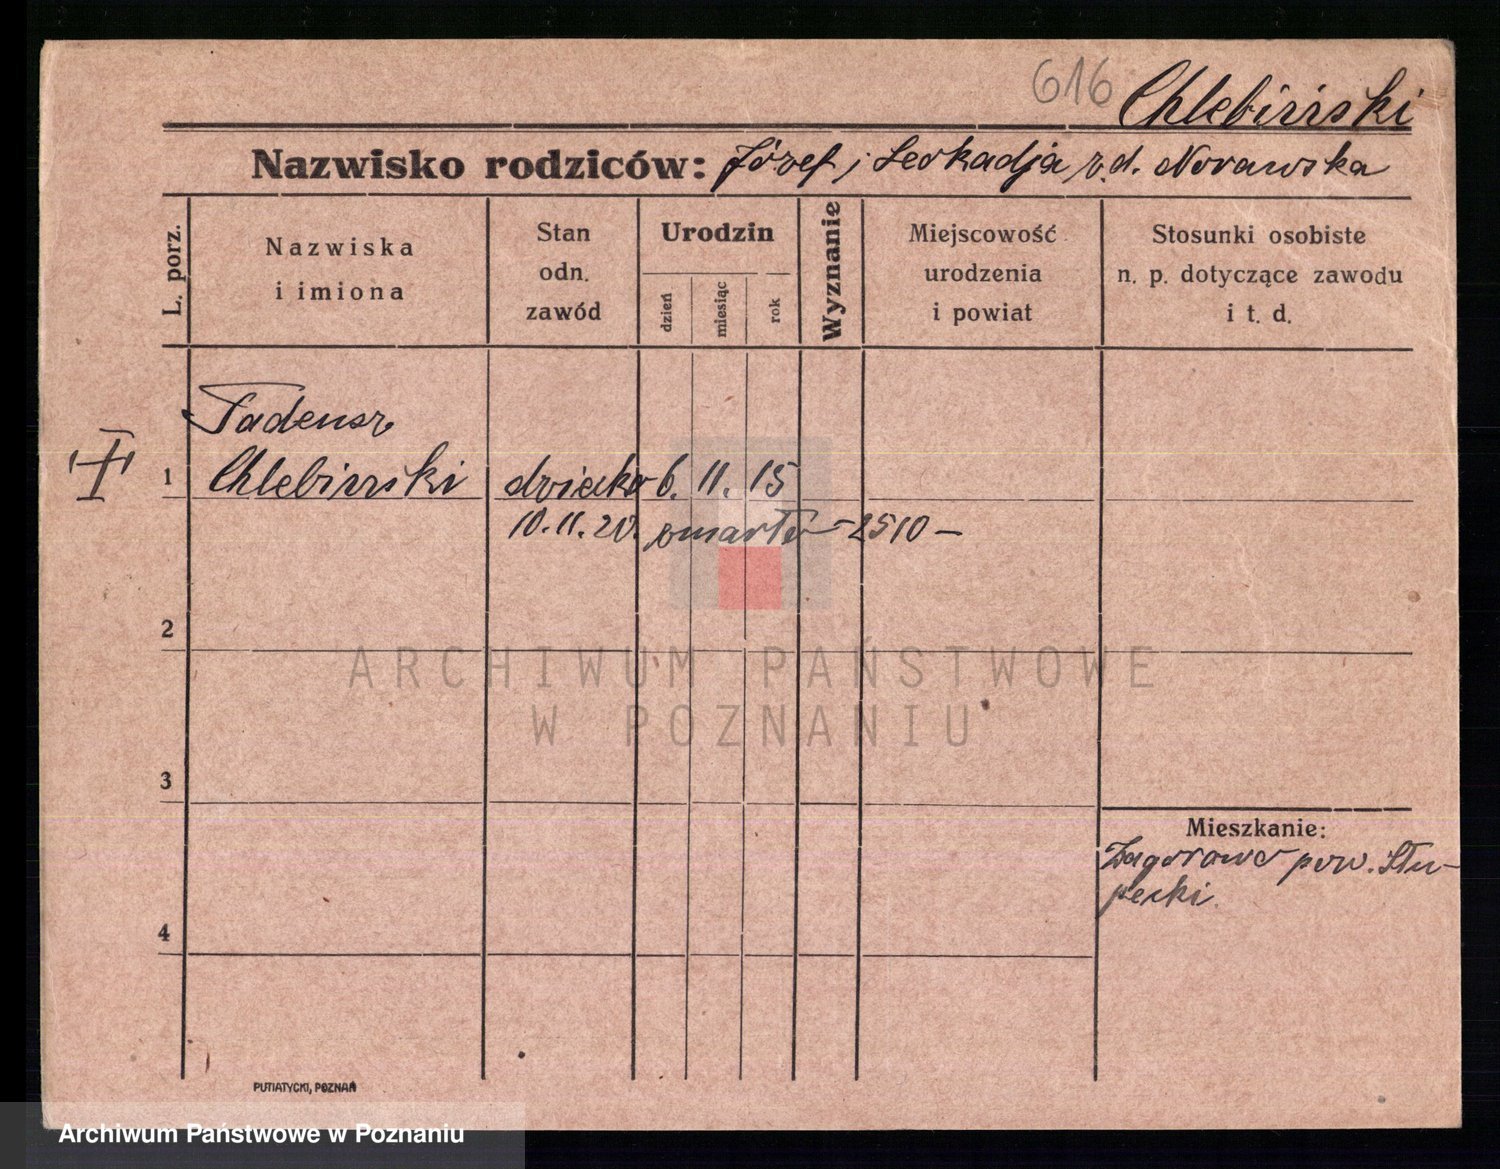 616 Chlebiński
Nazwisko rodziców: Józef i Leokadja z.d. Norawska
L. porz.
Nazwiska
i imiona
Stan
odn.
zawód
Urodzin
dzień
miesiąc
rok
Wyznanie
Miejscowość
urodzenia
i powiat
Stosunki osobiste
n. p. dotyczące zawodu
i t. d.
Tadeusz
1 Chlebiński dziecko 6. 11. 15
10.11.20. zmarło -2510-
2
3
4
Mieszkanie:
Zagorowo pow. Słu-
pecki
PUTIATYCKI, POZNAŃ
ARCHIWUM PAŃSTWOWE
W POZNANIU
Archiwum Państwowe w Poznaniu